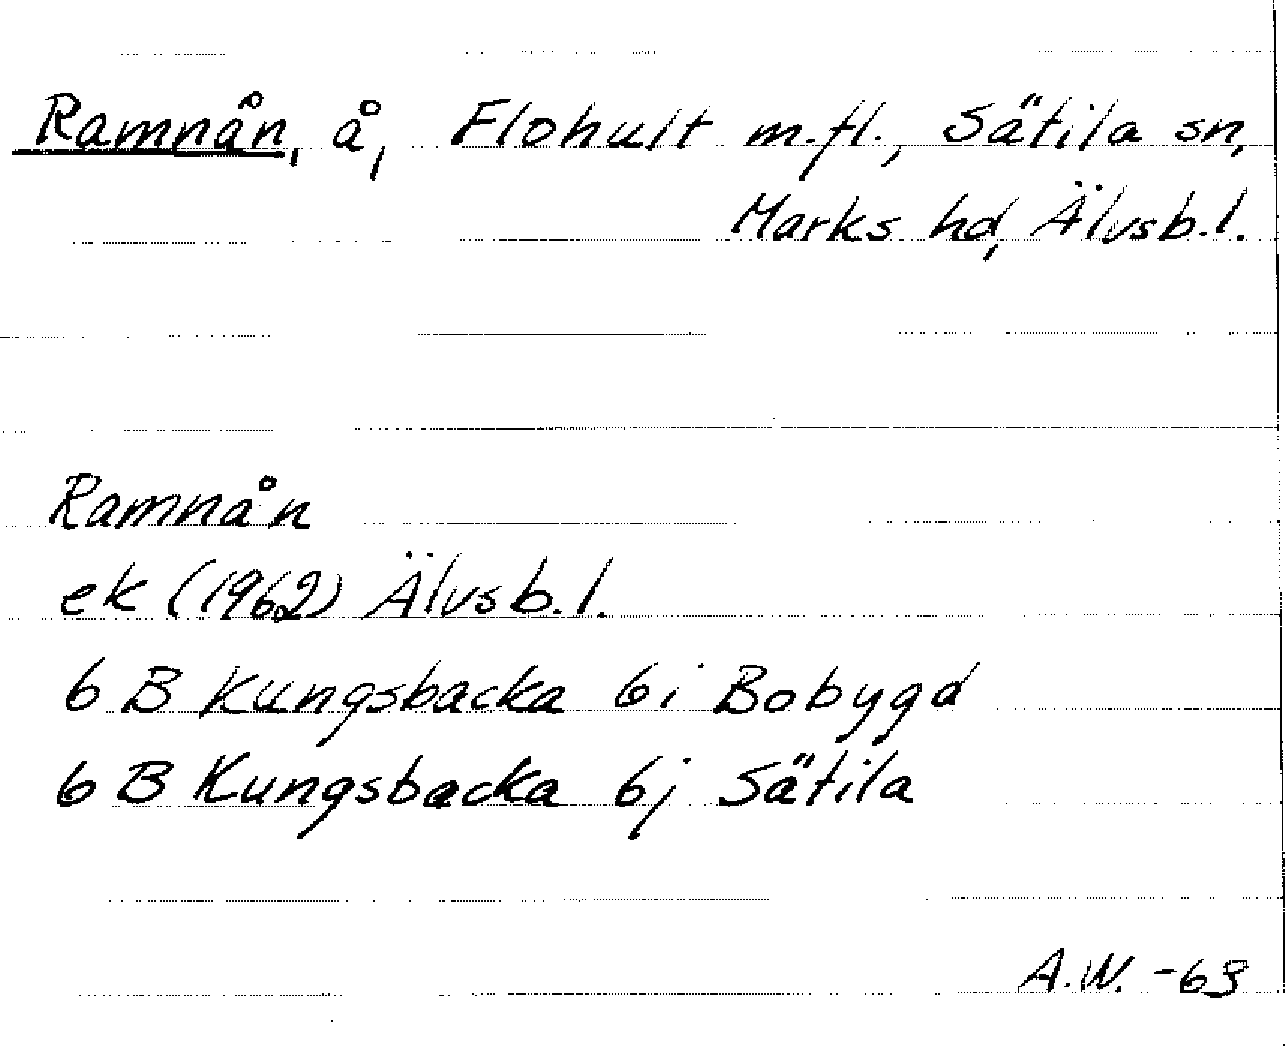 Ramnån, å, Flohult m.fl., Sätila sn,
Marks hd, Älvsb.l.
Ramnån
ek (1962) Älvsb.l.
6 B Kungsbacka 6i Bobygd
6 B Kungsbacka 6j Sätila
A.W. -63